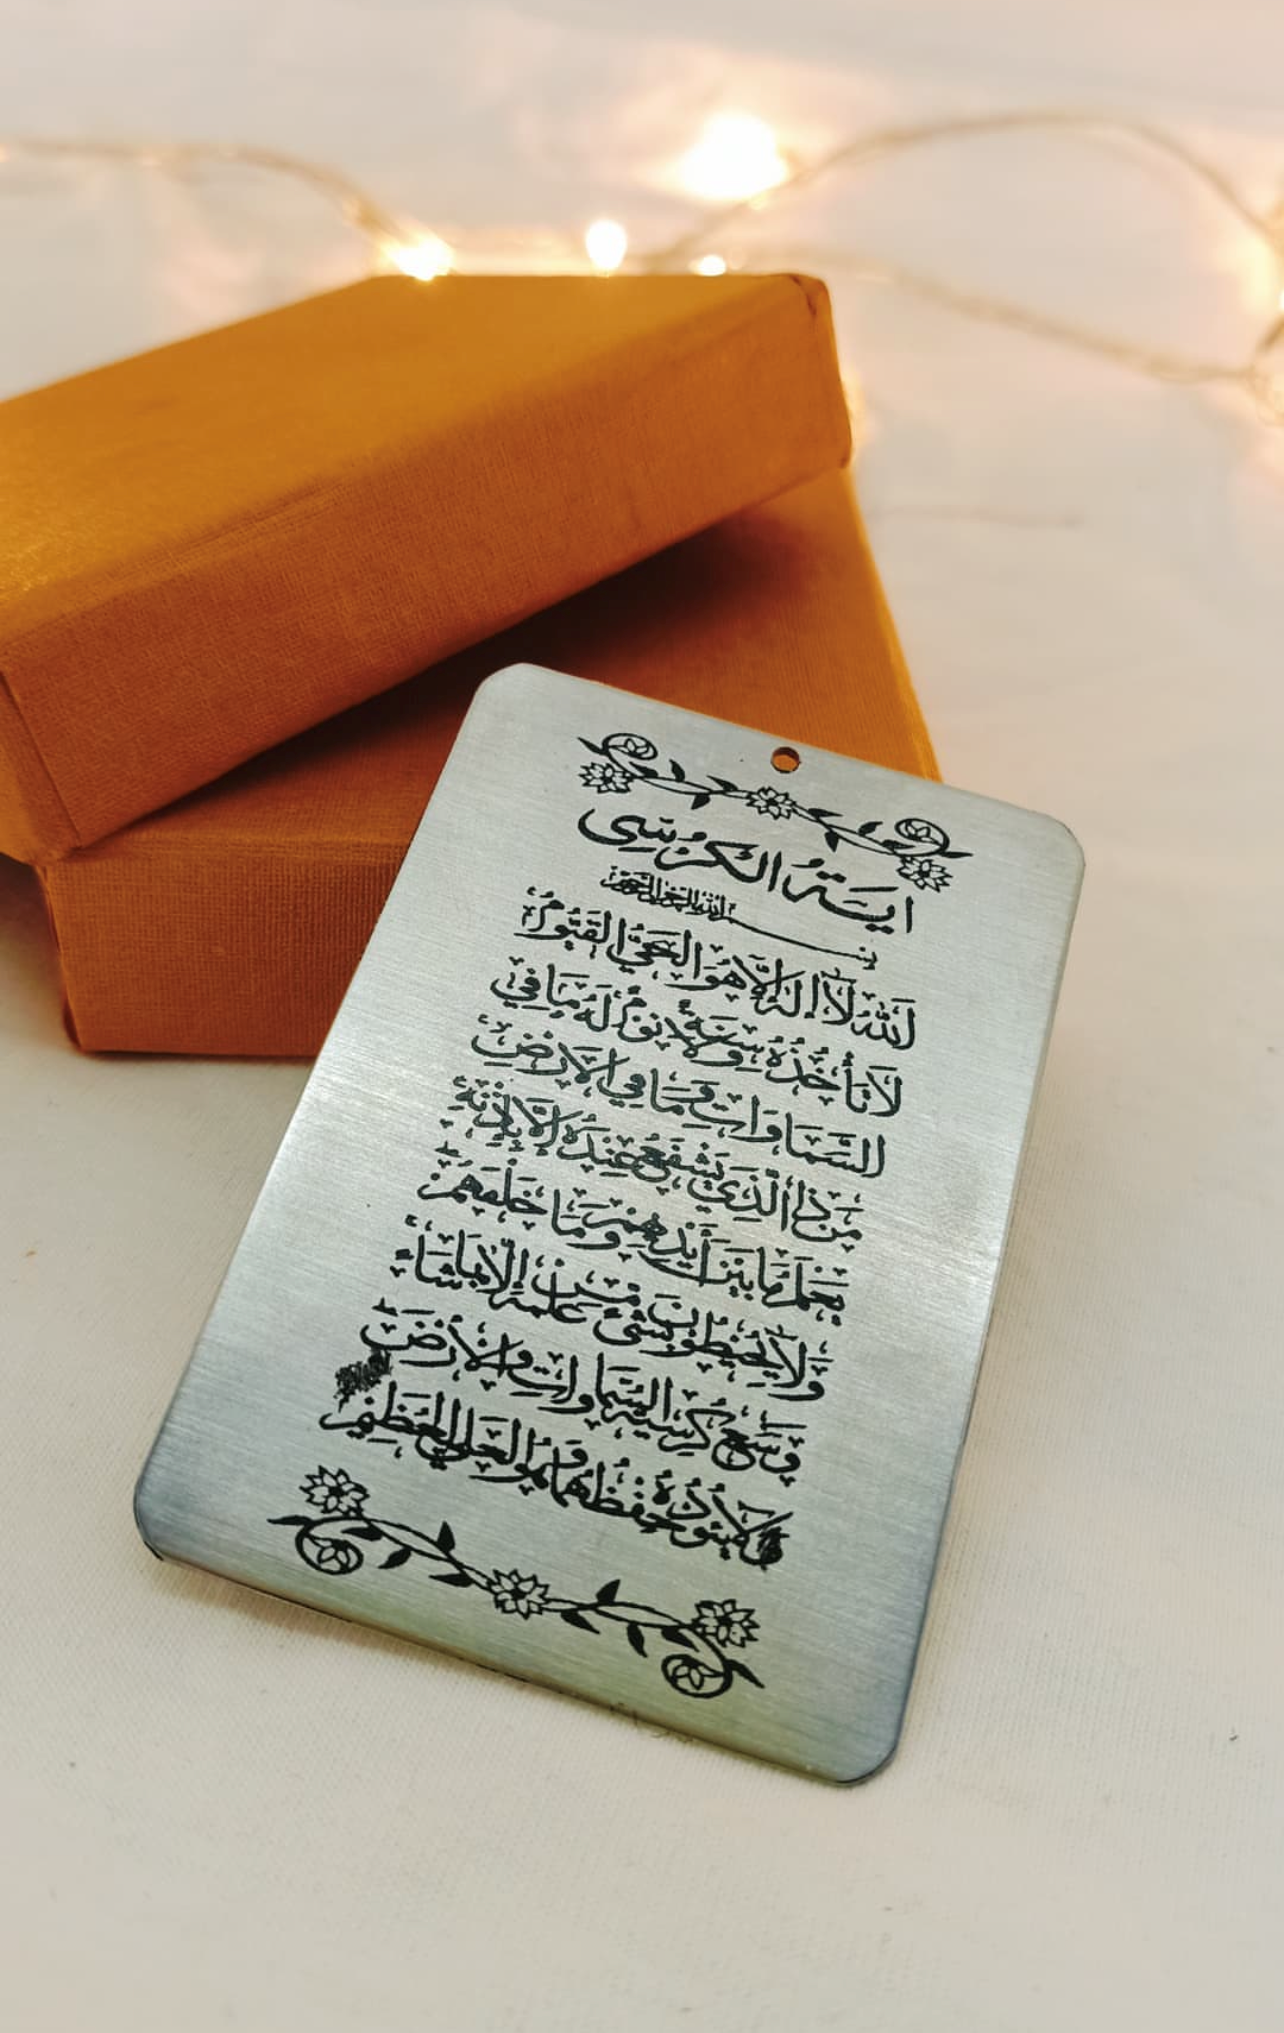 ايَةُ الكُرْسِي
بسم الله الرحمن الرحيم
لَلّٰهُ لَا إِلٰهَ إِلَّا هُوَ الْحَيُّ الْقَيُّومُ
لَا تَأْخُذُهُ سِنَةٌ وَلَا نَوْمٌ لَهُ مَا فِي
السَّمَاوَاتِ وَمَا فِي الْأَرْضِ
مَنْ ذَا الَّذِي يَشْفَعُ عِنْدَهُ إِلَّا بِإِذْنِهِ
يَعْلَمُ مَا بَيْنَ أَيْدِيهِمْ وَمَا خَلْفَهُمْ
وَلَا يُحِيطُونَ بِشَيْءٍ مِنْ عِلْمِهِ إِلَّا بِمَا شَاءَ
وَسِعَ كُرْسِيُّهُ السَّمَاوَاتِ وَالْأَرْضَ
وَلَا يَئُودُهُ حِفْظُهُمَا وَهُوَ الْعَلِيُّ الْعَظِيمُ